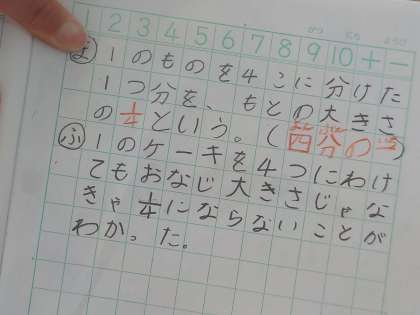 1 2 3 4 5 6 7 8 9 10 + −
ま 1のものを4こに分けた
1つ分を、もとの大きさ
の1/4という。(四分の一
ふ 1のケーキを4つにわけ
てもおなじ大きさじゃな
きゃ1/4にならないことが
わかった。